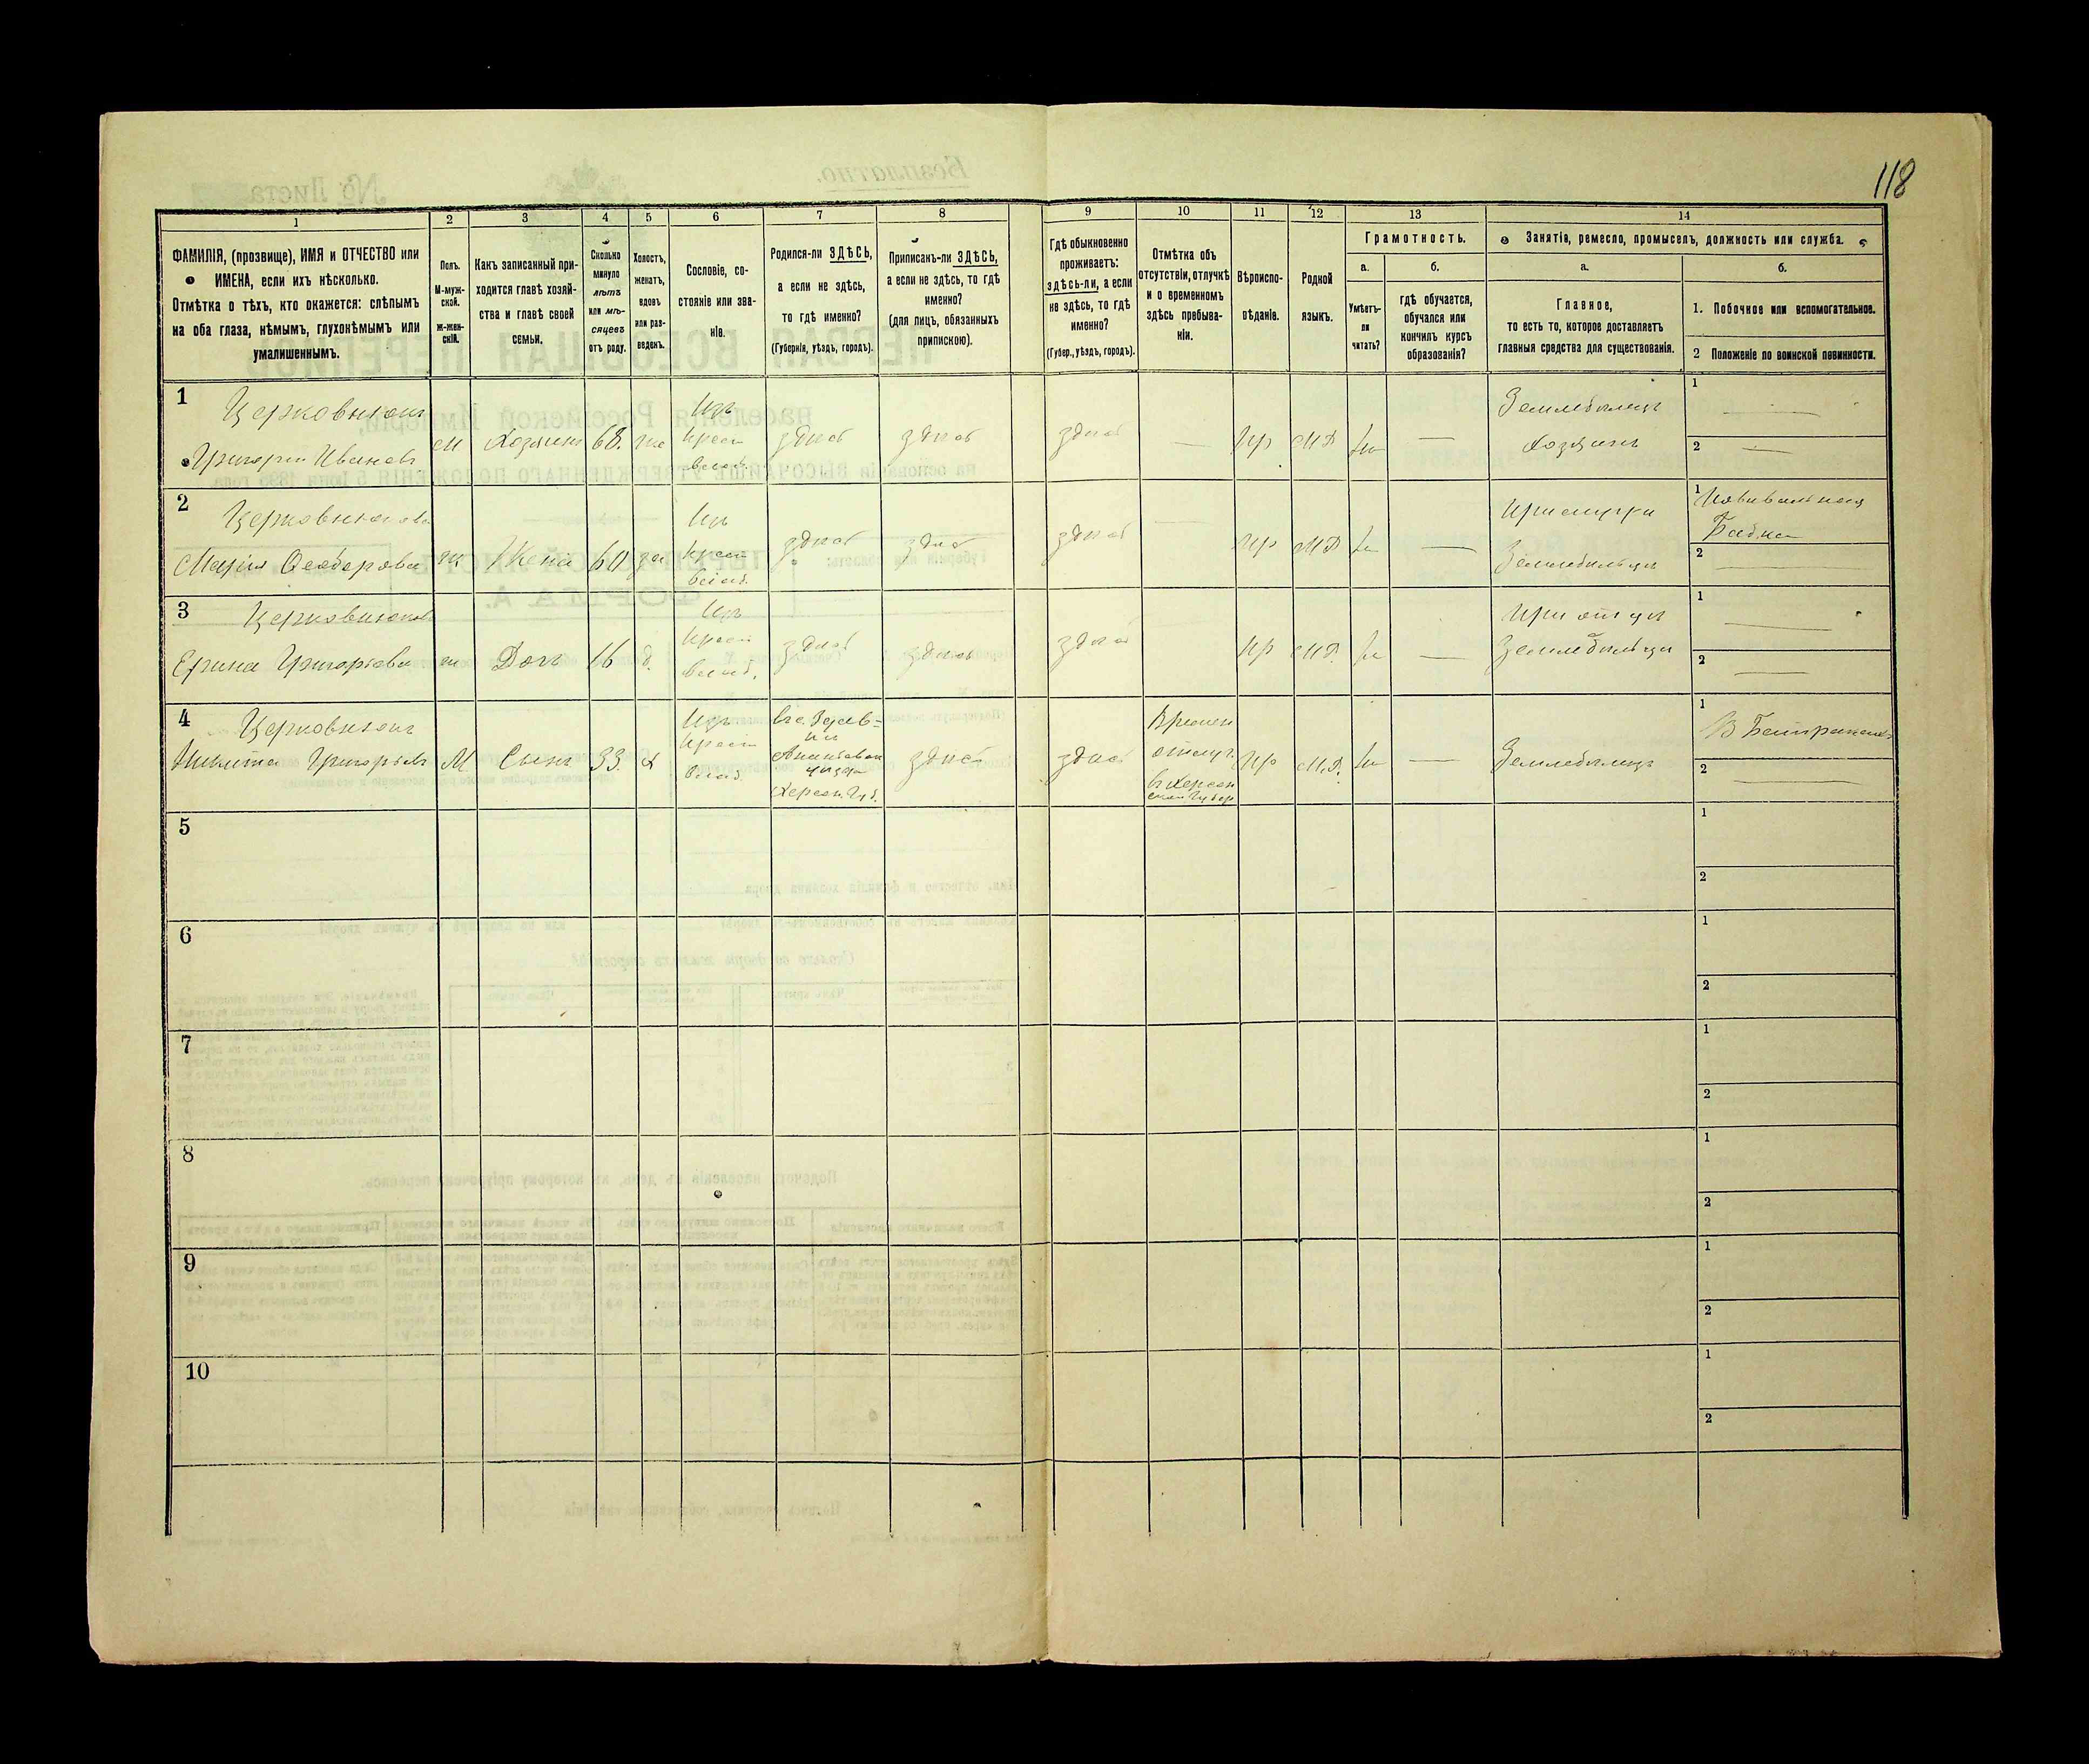 118
1
2
3
4
5
6
7
8
9
10
11
12
13
14
ФАМИЛІЯ, (прозвище), ИМЯ и ОТЧЕСТВО или
ИМЕНА, если ихъ нѣсколько.
Отмѣтка о тѣхъ, кто окажется: слѣпымъ
на оба глаза, нѣмымъ, глухонѣмымъ или
умалишеннымъ.
Полъ.
М-муж-
ской.
ж-жен-
скій.
Какъ записанный при-
ходится главѣ хозяй-
ства и главѣ своей
семьи.
Сколько
минуло
лѣтъ
или мѣ-
сяцевъ
отъ роду.
Холостъ,
женатъ,
вдовъ
или раз-
веденъ.
Сословіе, со-
стояніе или зва-
ніе.
Родился-ли ЗДѢСЬ,
а если не здѣсь,
то гдѣ именно?
(Губернія, уѣздъ, городъ).
Приписанъ-ли ЗДѢСЬ,
а если не здѣсь, то гдѣ
именно?
(для лицъ, обязанныхъ
припискою).
Гдѣ обыкновенно
проживаетъ:
здѣсь-ли, а если
не здѣсь, то гдѣ
именно?
(Губер., уѣздъ, городъ).
Отмѣтка объ
отсутствіи, отлучкѣ
и о временномъ
здѣсь пребыва-
ніи.
Вѣроиспо-
вѣданіе.
Родной
языкъ.
Грамотность.
а.
Умѣетъ-
ли
читать?
б.
гдѣ обучается,
обучался или
кончилъ курсъ
образованія?
Занятіе, ремесло, промыселъ, должность или служба.
а.
Главное,
то есть то, которое доставляетъ
главныя средства для существованія.
б.
1. Побочное или вспомогательное.
2 Положеніе по воинской повинности.
1
Церковнюкъ
Григорій Ивановъ
М
Хозяинъ
68.
же
Изъ
крест
здѣсь
здѣсь
здѣсь
—
пр
М.Р
—
Земледѣлецъ
хозяинъ
1 —
2 —
2
Церковнюкова
Марія Ѳеодорова
ж
Жена
60
за
Изъ
крест
здѣсь
здѣсь
здѣсь
—
пр
М.Р
—
При мужѣ
Земледѣльцѣ
1 Повивальная
Бабка
2 —
3
Церковнюкова
Ерина Григорьева
ж
Дочь
16
д.
Изъ
крест
здѣсь
здѣсь
здѣсь
пр
М.Р.
—
При отцѣ
Земледѣльцѣ
1 —
2 —
4
Церковнюкъ
Никита Григорьевъ
М
Сынъ
33.
х
Изъ
крест
Ананьевск
уѣзда
Херсон. Губ.
здѣсь
здѣсь
Времен
отлуч
въ Херсон
ской Губер
пр
М.Р.
—
Земледѣлецъ
1
2 —
5
1
2
6
1
2
7
1
2
8
1
2
9
1
2
10
1
2